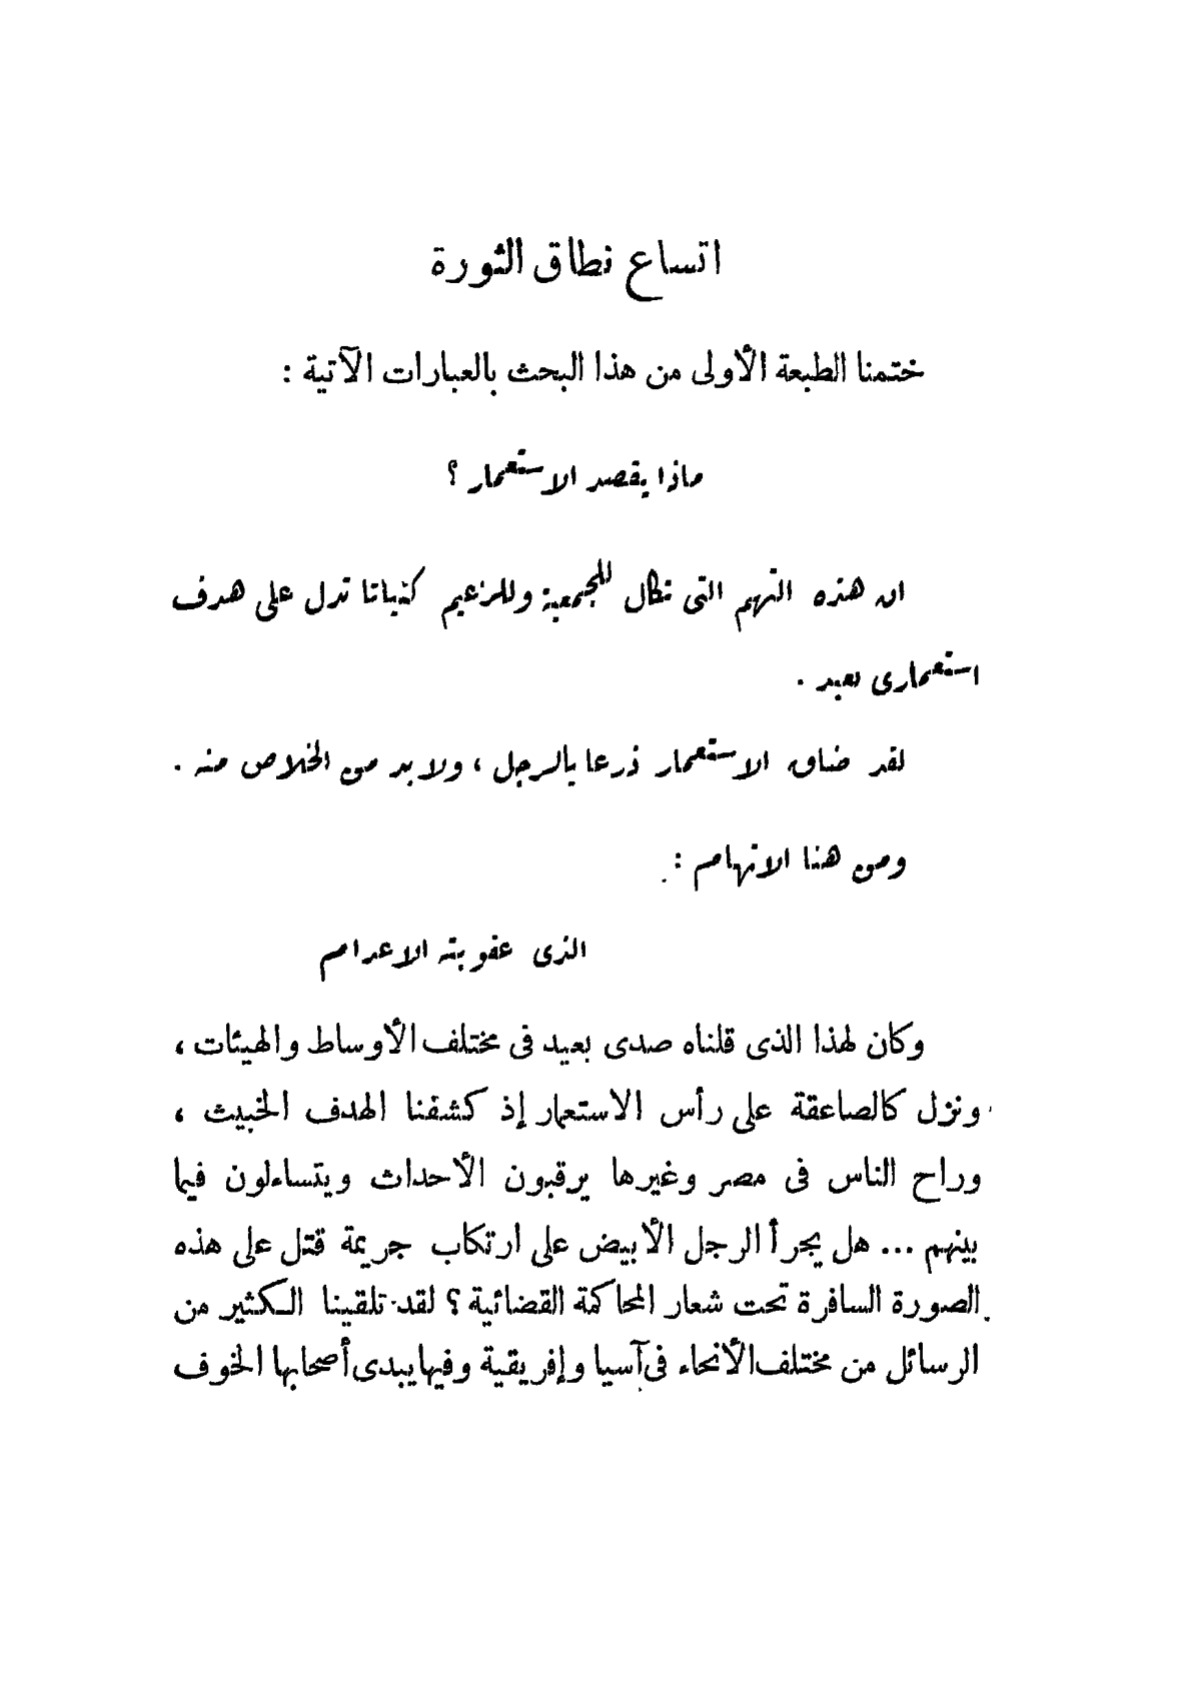 اتساع نطاق الثورة
ختمنا الطبعة الأولى من هذا البحث بالعبارات الآتية :
ماذا يقصد الاستعمار ؟
ان هذه التهم التى تكال للجمعية وللزعيم كنياتا تدل على هدف
استعمارى بعيد .
لقد ضاق الاستعمار ذرعا بالرجل ، ولا بد من الخلاص منه .
ومن هنا الاتهام :
الذى عقوبته الاعدام
وكان لهذا الذى قلناه صدى بعيد فى مختلف الأوساط والهيئات ،
ونزل كالصاعقة على رأس الاستعمار إذ كشفنا الهدف الخبيث ،
وراح الناس فى مصر وغيرها يرقبون الأحداث ويتساءلون فيما
بينهم ... هل يجرأ الرجل الأبيض على ارتكاب جريمة قتل على هذه
الصورة السافرة تحت شعار المحاكمة القضائية ؟ لقد تلقينا الكثير من
الرسائل من مختلف الأنحاء فى آسيا وإفريقية وفيها يبدى أصحابها الخوف